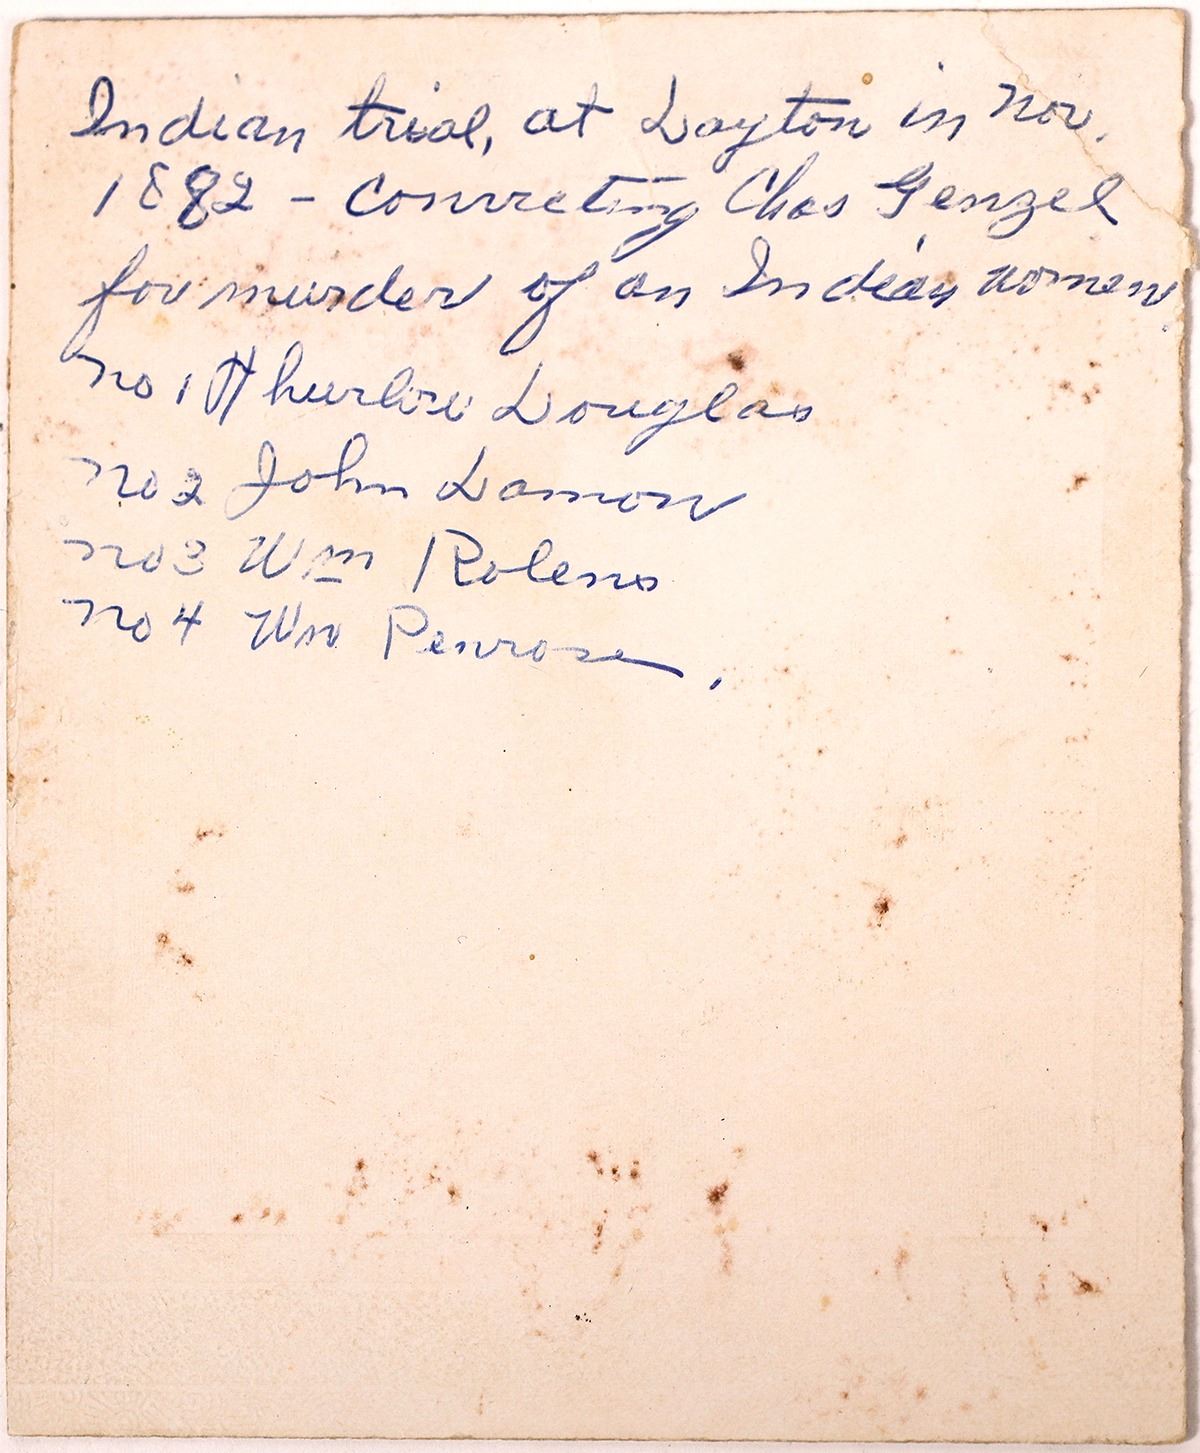 Indian trial, at Dayton in Nov.
1882 - Convicting Chas Genzel
for murder of an Indian women.
No 1 Thurlow Douglas
No 2 John Damon
No 3 Wm Rolens
No 4 Wm Penrose,